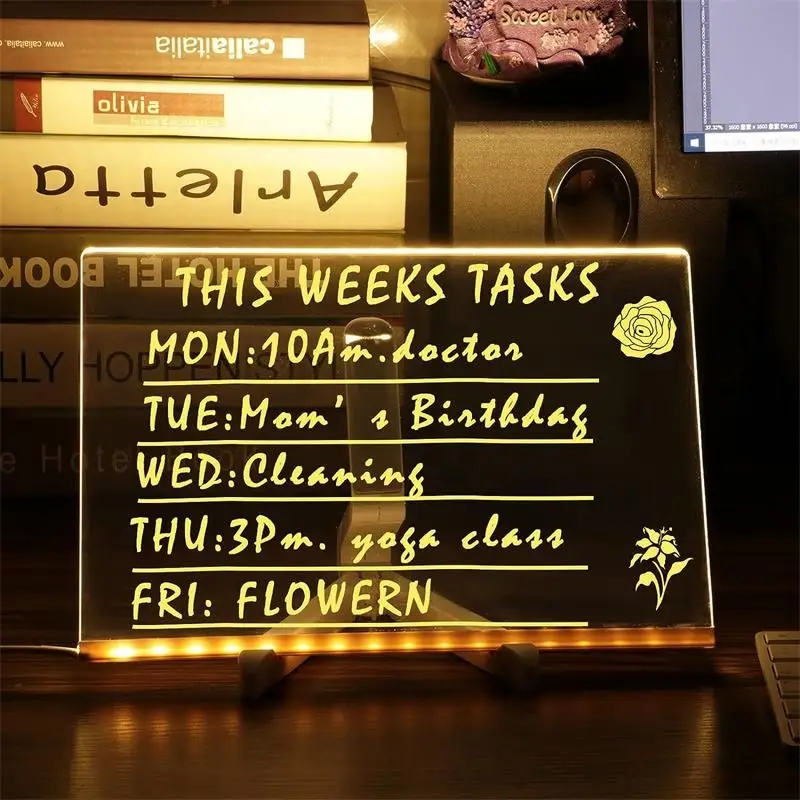 www.caliaitalia
caliaitalia
olivia
Arletta
THE HOTEL BOOK
LLY HOPPEN STYL
e Hotel Book
Sweet Love
37.32%
THIS WEEKS TASKS
MON:10Am.doctor
TUE:Mom's Birthday
WED:Cleaning
THU:3Pm. yoga class
FRI: FLOWERN